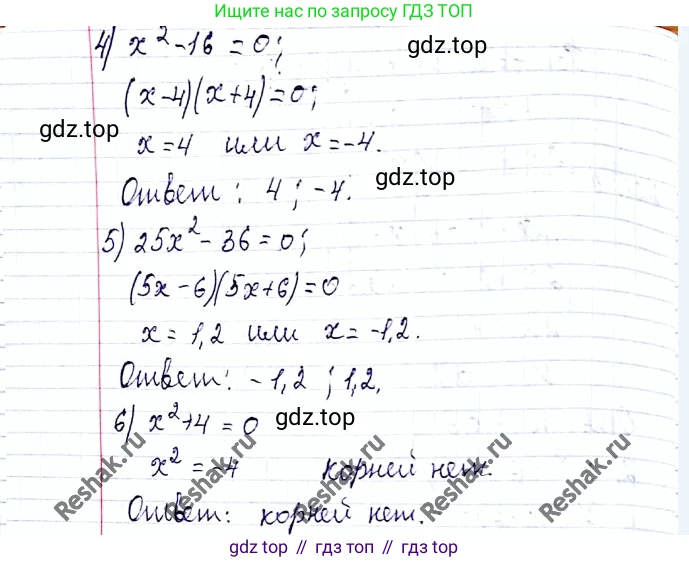 Ищите нас по запросу ГДЗ ТОП
4) x² - 16 = 0;
gdz.top
(x-4)(x+4)=0;
gdz.top
x=4 или x=-4.
gdz.top
Ответ: 4; -4.
5) 25x² - 36 = 0;
(5x-6)(5x+6)=0
x = 1,2 или x = -1,2.
Ответ: -1,2 ; 1,2.
6) x² + 4 = 0
gdz.top
x² = -4 корней нет.
Ответ: корней нет.
Reshak.ru
Reshak.ru
Reshak.ru
Reshak.ru
gdz top // гдз топ // gdz.top